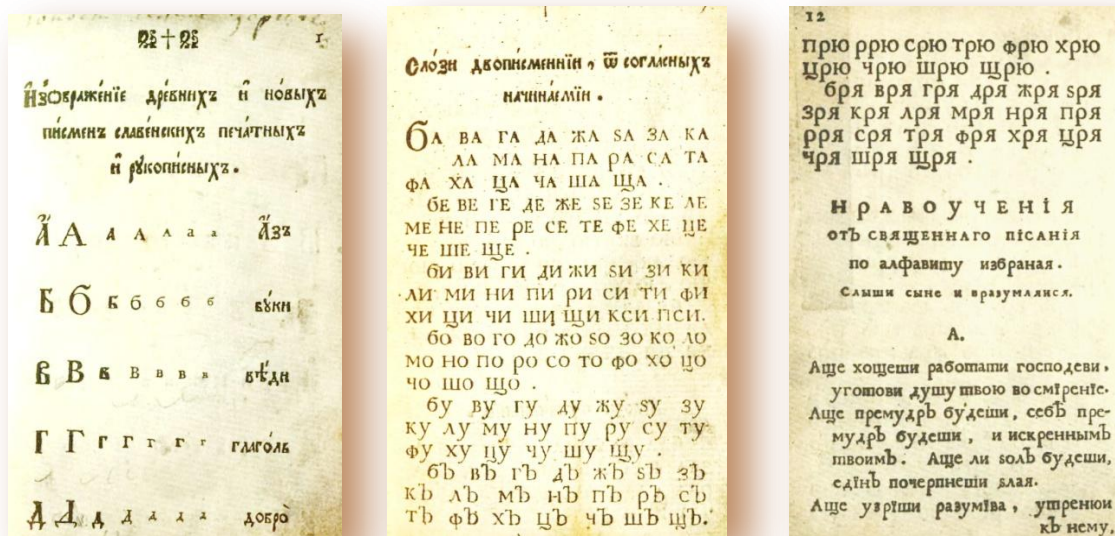 1
Изображенїе древнихъ и новыхъ
писменъ славенскихъ печатныхъ
и рукописныхъ.
А А А А А а а Азъ
Б Б Б б б б б буки
В В В В В в в вѣди
Г Г Г Г Г г г глаголь
Д Д Д Д Д д д добро
Слози двописменнїи, ѿ согласныхъ
начинаемїи.
ба ва га да жа ѕа за ка
ла ма на па ра са та
фа ха ца ча ша ща .
бе ве ге де же ѕе зе ке ле
ме не пе ре се те фе хе це
че ше ще .
би ви ги ди жи ѕи зи ки
ли ми ни пи ри си ти фи
хи ци чи ши щи кси пси.
бо во го до жо ѕо зо ко ло
мо но по ро со то фо хо цо
чо шо що .
бу ву гу ду жу ѕу зу
ку лу му ну пу ру су ту
фу ху цу чу шу щу .
бъ въ гъ дъ жъ ѕъ зъ
къ лъ мъ нъ пъ ръ съ
тъ фъ хъ цъ чъ шъ щъ.
12
прю ррю срю трю фрю хрю
црю чрю шрю щрю .
бря вря гря дря жря ѕря
зря кря лря мря нря пря
рря сря тря фря хря цря
чря шря щря .
НРАВОУЧЕНІЯ
отъ священнаго пісанія
по алфавиту избраная.
Слыши сыне и вразумляися.
А.
Аще хощеши работати господеви,
уготови душу твою во смїренїе.
Аще премудръ будеши, себѣ пре-
мудръ будеши, и искреннымъ
твоимъ. Аще ли ѕолъ будеши,
едїнъ почерпнеши ѕлая.
Аще узрїши разумїва, утренюи
къ нему,